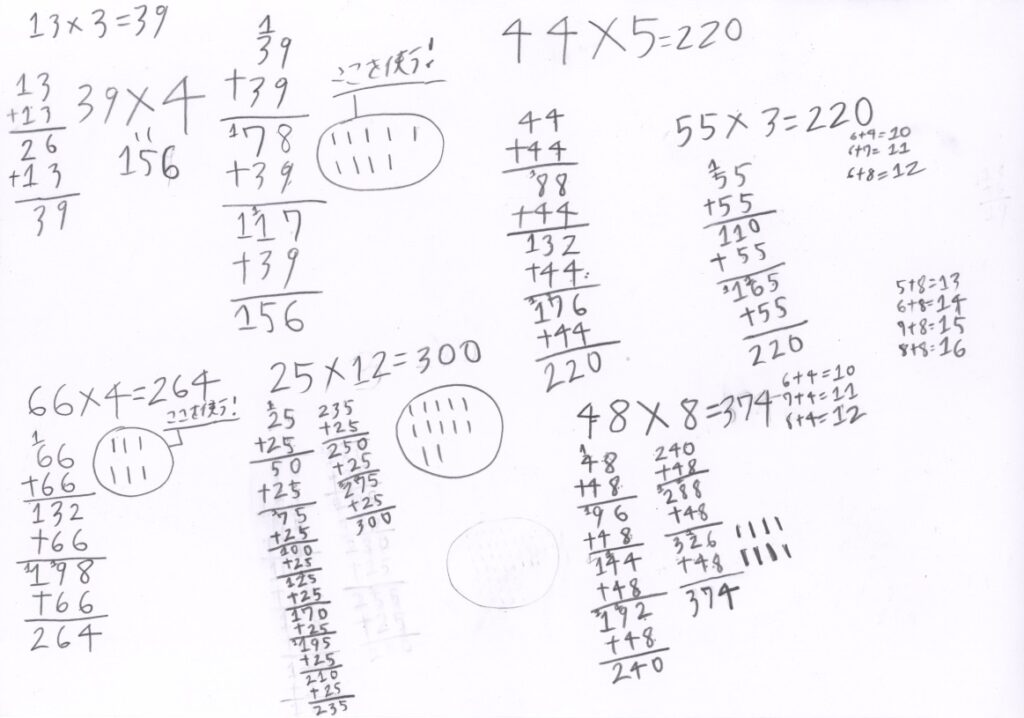 13×3=39
13
+13
26
+13
39
39×4
=
156
1
39
+39
178
+39
1117
+39
156
ここを使う!
44×5=220
44
+44
88
+44
132
+44
176
+44
220
55×3=220
6+4=10
6+8=12
1
55
+55
110
+55
165
+55
220
5+8=13
6+8=14
9+8=15
8+8=16
66×4=264
ここを使う!
1
66
+66
132
+66
198
+66
264
25×12=300
1
25
+25
50
+25
75
+25
100
+25
125
+25
170
+25
195
+25
210
+25
235
235
+25
250
+25
275
+25
300
48×8=374
6+4=10
7+4=11
8+4=12
1
48
+48
96
+48
144
+48
192
+48
240
240
+48
288
+48
326
+48
374